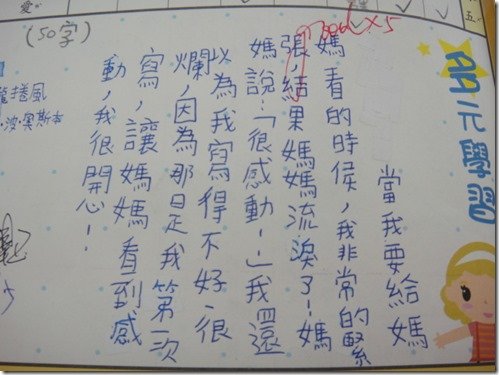 愛
五
多元學習
Good×5
當我要給媽
媽看的時候,我非常的緊
張,結果媽媽流淚了!媽
媽說:「很感動!」我還
以為我寫得不好、很
爛,因為那是我第一次
寫,讓媽媽看到感
動,我很開心!
(50字)
龍捲風
·波·奧斯本